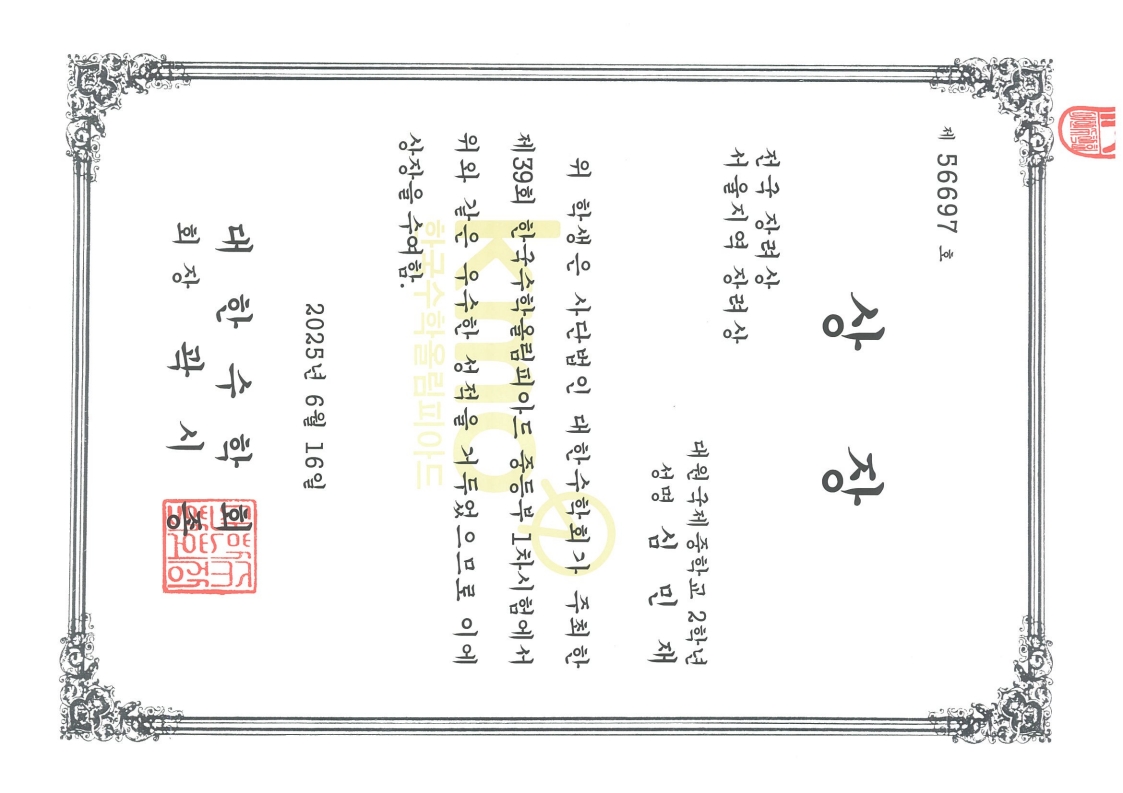 제 56697 호
상 장
전국 장려상
서울지역 장려상
대원국제중학교 2학년
성명 심 민 재
위 학생은 사단법인 대한수학회가 주최한
제39회 한국수학올림피아드 중등부 1차시험에서
위와 같은 우수한 성적을 거두었으므로 이에
상장을 수여함.
kmo
한국수학올림피아드
2025년 6월 16일
대 한 수 학 회
회장 곽 시 종